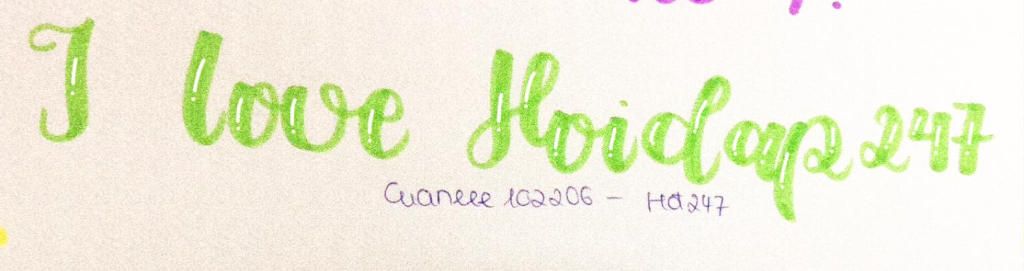 I love Hoidap247
Cuaneee 102206 - Hd247